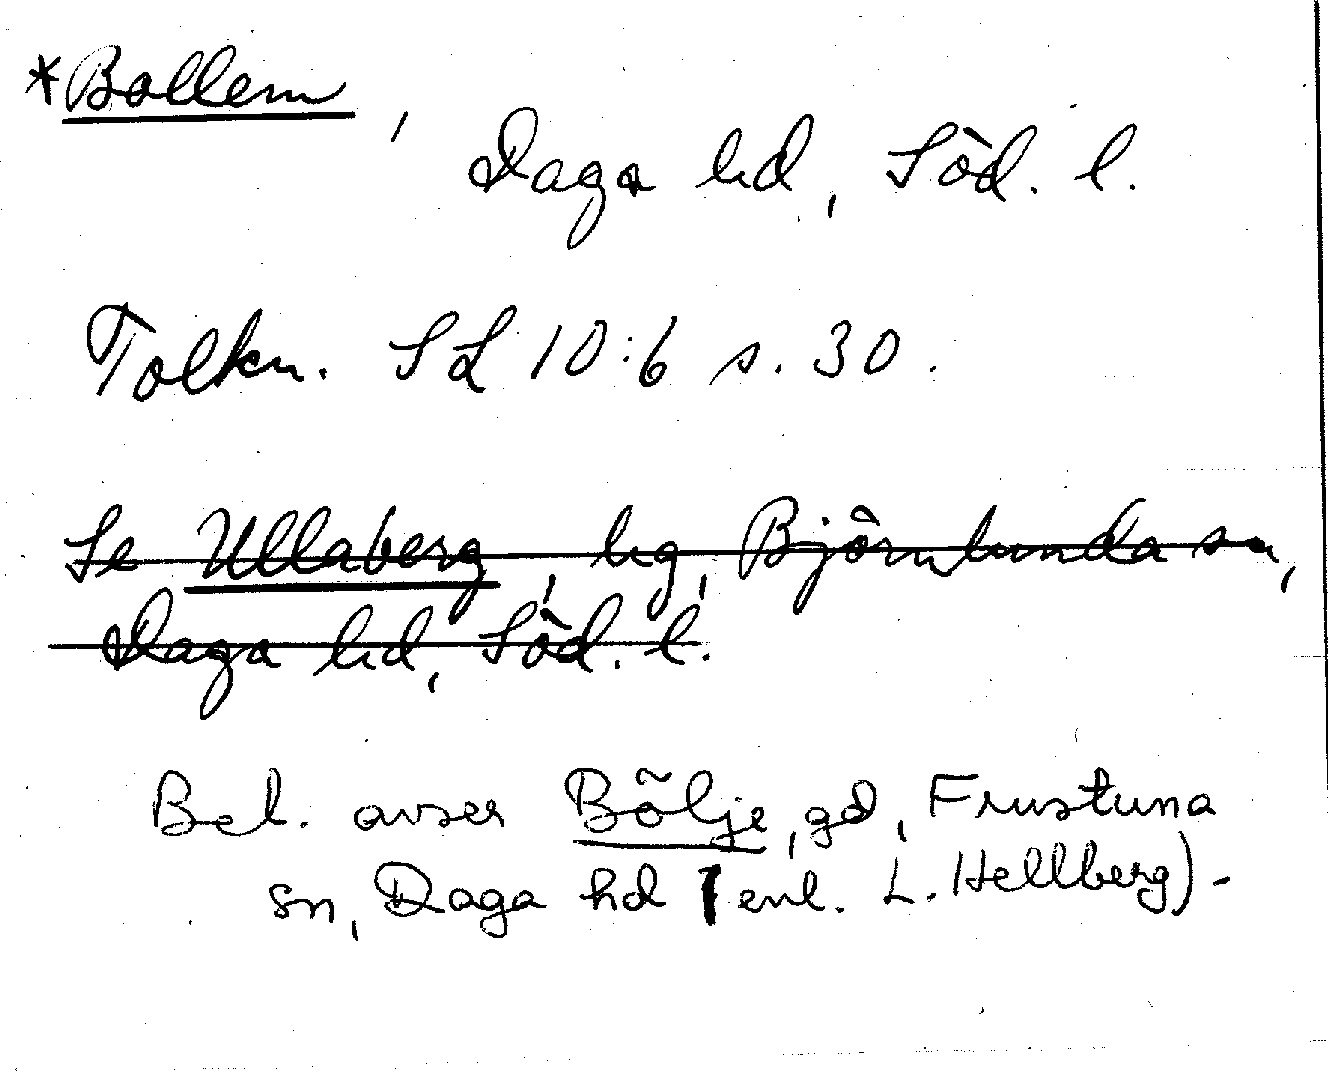 *Bollem,
Daga hd, Söd. l.
Tolkn. SL 10:6 s. 30.
Se Ullaberg, hg, Björnlunda sn,
Daga hd, Söd. l.
Bel. avser Bölje, gd, Frustuna
sn, Daga hd (enl. L. Hellberg).